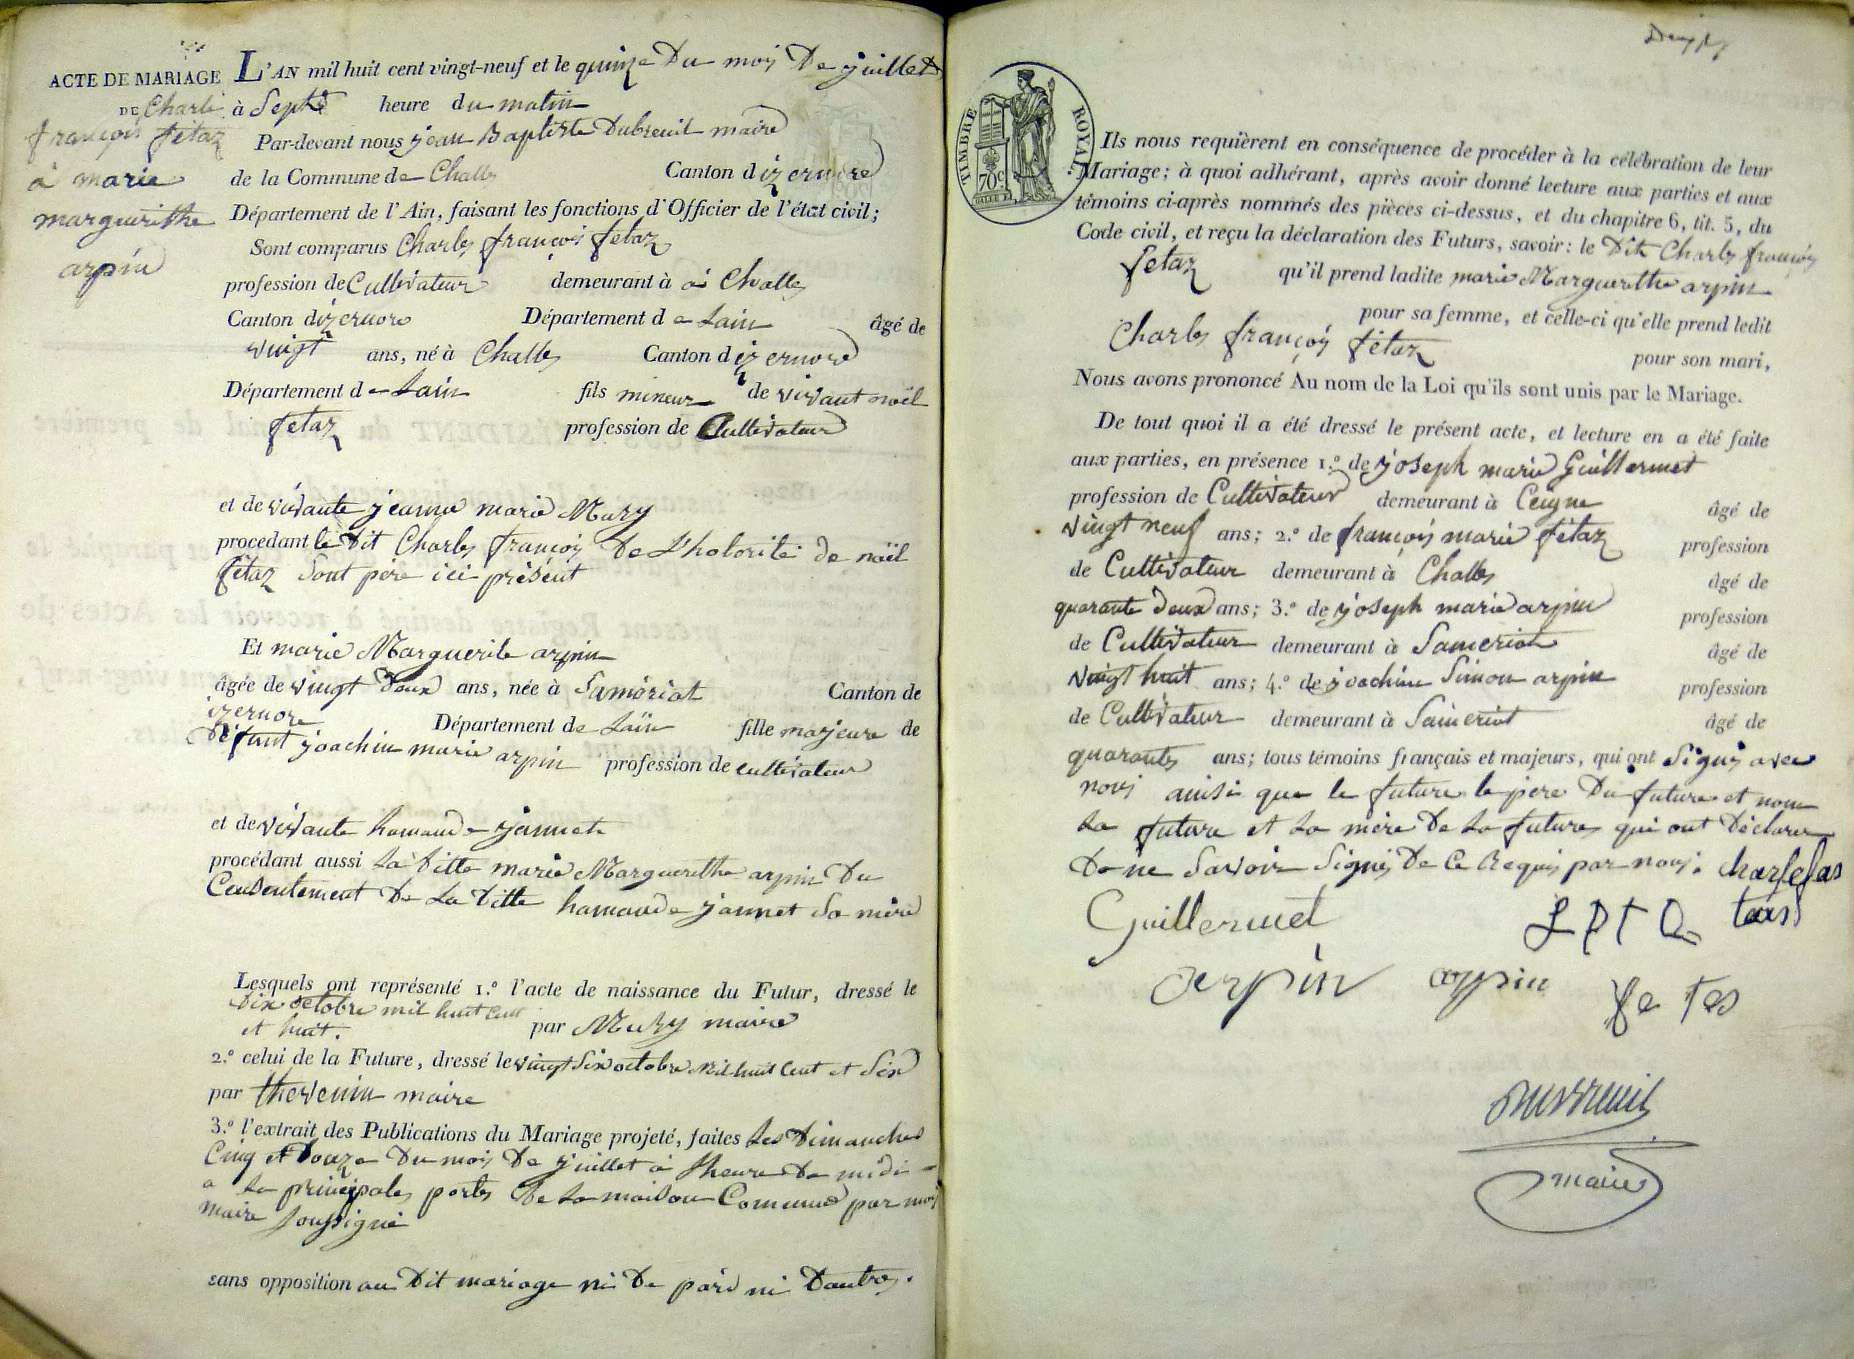 ACTE DE MARIAGE
DE Charle
françois fétaz
a marie
marguerithe
arpin
L'AN mil huit cent vingt-neuf et le quinze Du mois De juillet
à Septs heure du matin
Par-devant nous jean Baptiste Dubreuil maire
de la Commune de Challes Canton d izernore
Département de l'Ain, faisant les fonctions d'Officier de l'état civil;
Sont comparus Charles françois fetaz
profession de Cultivateur demeurant à a Challes
Canton d izernore Département de Lain âgé de
vingt ans, né à Challes Canton d izernore
Département de Lain fils mineur de vivant noël
fetaz profession de Cultivateur
et de vivante jeanne marie Mury
procedant le Dit Charles françois De L'holorité de noël
fétaz Sont père ici présent
Et marie Marguerite arpin
âgée de vingt Deux ans, née à Samériat Canton de
izernore Département de Lain fille majeure de
Défunt joachin marie arpin profession de cultivateur
et de vivante hamande jannet
procédant aussi La Ditte marie Marguerithe arpin Du
Consentement De La Ditte hamande jannet Sa mère
Lesquels ont représenté 1.º l'acte de naissance du Futur, dressé le
Dix octobre mil huit cent
et huit. par Mury maire
2.º celui de la Future, dressé le vingt Six octobre Mil huit Cent et Six
par thevenin maire
3.º l'extrait des Publications du Mariage projeté, faites Les Dimanches
Cinq et Douze Du mois De juillet a Lheure De midi
a la principales portes De La maison Commune par moi
maire Soussigné
sans opposition au Dit mariage ni De pard ni Dautres.
TIMBRE ROYAL
70c
Ils nous requièrent en conséquence de procéder à la célébration de leur
Mariage; à quoi adhérant, après avoir donné lecture aux parties et aux
témoins ci-après nommés des pièces ci-dessus, et du chapitre 6, tit. 5, du
Code civil, et reçu la déclaration des Futurs, savoir: le Dit Charles françois
fetaz qu'il prend ladite marie Marguerithe arpin
pour sa femme, et celle-ci qu'elle prend ledit
Charles françois fétaz pour son mari,
Nous avons prononcé Au nom de la Loi qu'ils sont unis par le Mariage.
De tout quoi il a été dressé le présent acte, et lecture en a été faite
aux parties, en présence 1.º de joseph marie Guillermet
profession de Cultivateur demeurant à Ceigne âgé de
vingt neuf ans; 2.º de françois marie fétaz profession
de Cultivateur demeurant à Challes âgé de
quarante Deux ans; 3.º de joseph marie arpin profession
de Cultivateur demeurant à Sameriat âgé de
vingt huit ans; 4.º de joachin Simon arpin profession
de Cultivateur demeurant à Sameriat âgé de
quarantes ans; tous témoins français et majeurs, qui ont Signés avec
nous ainsi que le future le père Du future et nom
La future et La mère De La future qui ont Déclarer
De ne Savoir Signés De Ce Requis par nous. charlefas
Guillermet L P T Q tais
arpin arpin fe tes
Dubreuil
maire